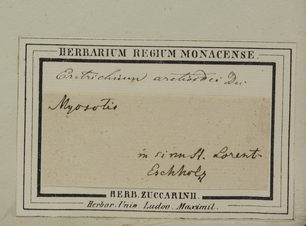 HERBARIUM REGIUM MONACENSE.
Eritrichium
Myosotis
in sinu St. Lorent
Eschholz
HERB. ZUCCARINII.
Herbar. Univ. Ludov. Maximil.